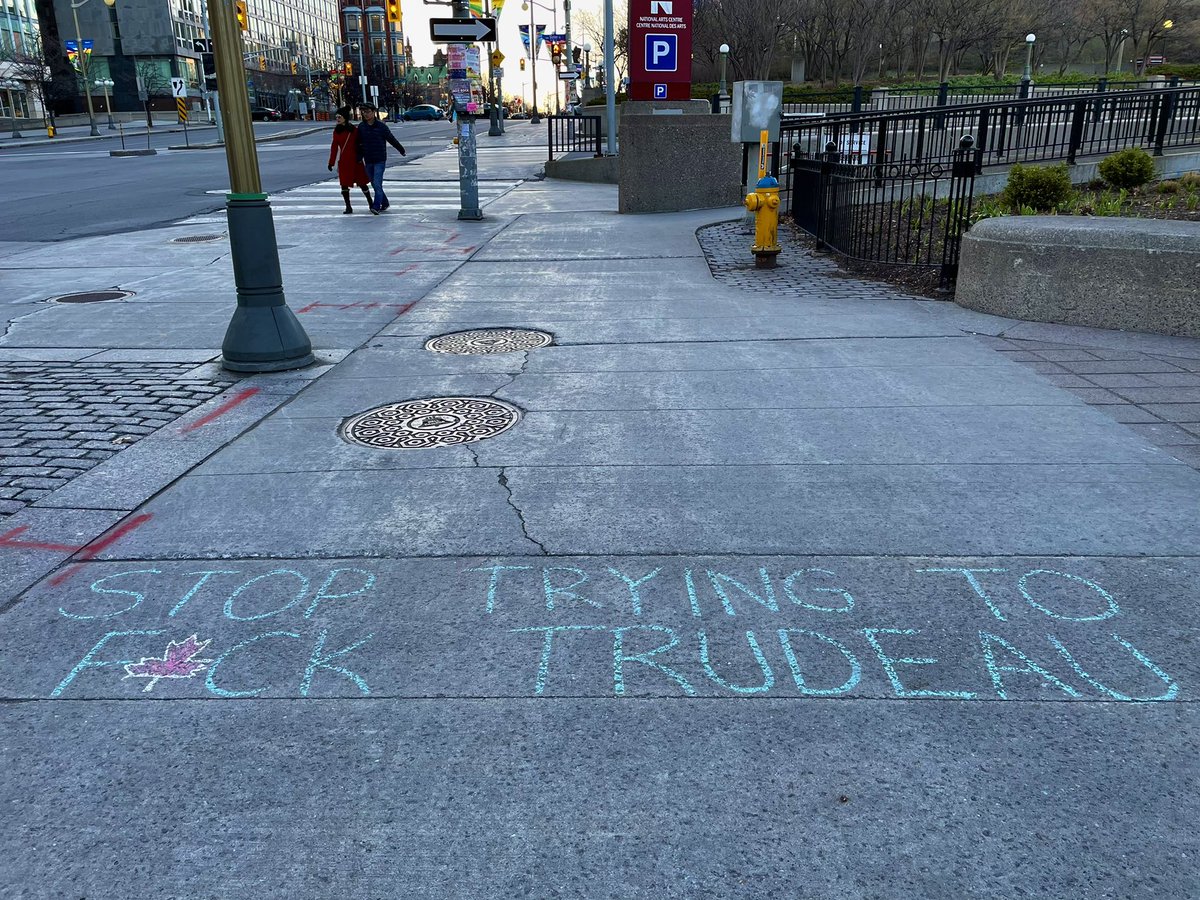 NATIONAL ARTS CENTRE
CENTRE NATIONAL DES ARTS
P
P
STOP TRYING TO
F CK TRUDEAU